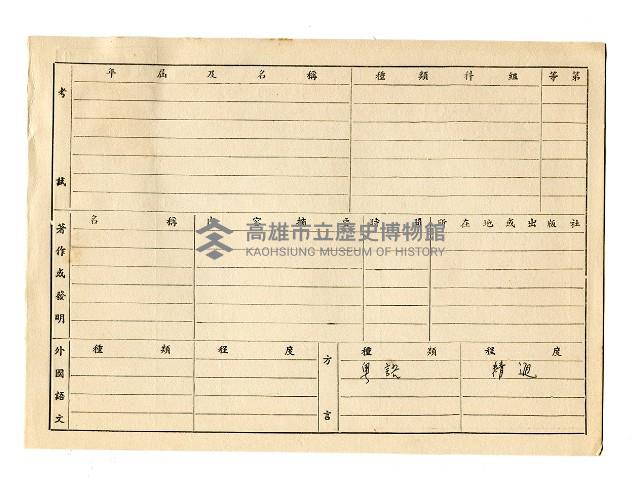 考試
年屆及名稱 種類科組 等第
著作或發明
名稱 內容摘要 時間 所在地或出版社
高雄市立歷史博物館
KAOHSIUNG MUSEUM OF HISTORY
外國語文
種類 程度
方言
種類 程度
粵語 精通